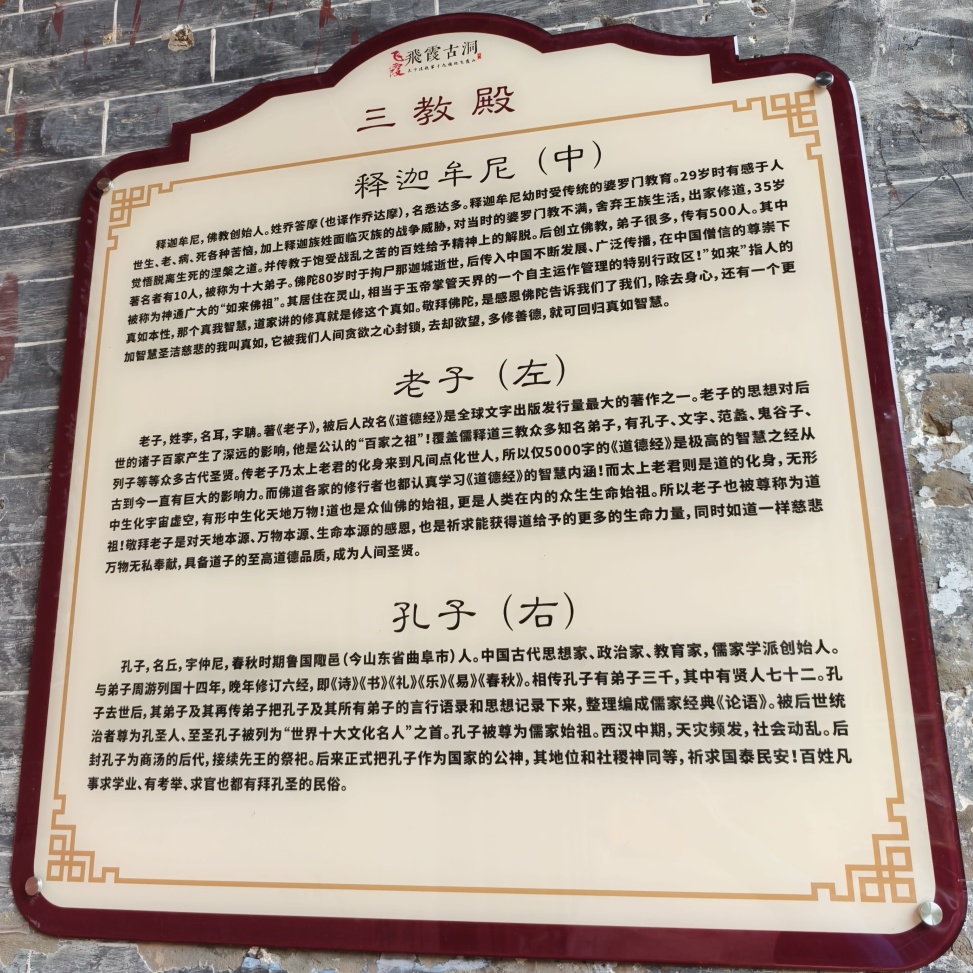 飞霞 飛霞古洞
三教殿
释迦牟尼（中）
释迦牟尼，佛教创始人。姓乔答摩（也译作乔达摩），名悉达多。释迦牟尼幼时受传统的婆罗门教育。29岁时有感于人
世生、老、病、死各种苦恼，加上释迦族姓面临灭族的战争威胁，对当时的婆罗门教不满，舍弃王族生活，出家修道，35岁
觉悟脱离生死的涅槃之道。并传教于饱受战乱之苦的百姓给予精神上的解脱。后创立佛教，弟子很多，传有500人。其中
著名者有10人，被称为十大弟子。佛陀80岁时于拘尸那迦城逝世，后传入中国不断发展、广泛传播，在中国僧信的尊崇下
被称为神通广大的“如来佛祖”。其居住在灵山，相当于玉帝掌管天界的一个自主运作管理的特别行政区！”如来”指人的
真如本性，那个真我智慧，道家讲的修真就是修这个真如。敬拜佛陀，是感恩佛陀告诉我们了我们，除去身心，还有一个更
加智慧圣洁慈悲的我叫真如，它被我们人间贪欲之心封锁，去却欲望，多修善德，就可回归真如智慧。
老子（左）
老子，姓李，名耳，字聃。著《老子》，被后人改名《道德经》是全球文字出版发行量最大的著作之一。老子的思想对后
世的诸子百家产生了深远的影响，他是公认的“百家之祖”！覆盖儒释道三教众多知名弟子，有孔子、文字、范蠡、鬼谷子、
列子等等众多古代圣贤。传老子乃太上老君的化身来到凡间点化世人，所以仅5000字的《道德经》是极高的智慧之经从
古到今一直有巨大的影响力。而佛道各家的修行者也都认真学习《道德经》的智慧内涵！而太上老君则是道的化身，无形
中生化宇宙虚空，有形中生化天地万物！道也是众仙佛的始祖，更是人类在内的众生生命始祖。所以老子也被尊称为道
祖！敬拜老子是对天地本源、万物本源、生命本源的感恩，也是祈求能获得道给予的更多的生命力量，同时如道一样慈悲
万物无私奉献，具备道子的至高道德品质，成为人间圣贤。
孔子（右）
孔子，名丘，字仲尼，春秋时期鲁国陬邑（今山东省曲阜市）人。中国古代思想家、政治家、教育家，儒家学派创始人。
与弟子周游列国十四年，晚年修订六经，即《诗》《书》《礼》《乐》《易》《春秋》。相传孔子有弟子三千，其中有贤人七十二。孔
子去世后，其弟子及其再传弟子把孔子及其所有弟子的言行语录和思想记录下来，整理编成儒家经典《论语》。被后世统
治者尊为孔圣人、至圣孔子被列为“世界十大文化名人”之首。孔子被尊为儒家始祖。西汉中期，天灾频发，社会动乱。后
封孔子为商汤的后代，接续先王的祭祀。后来正式把孔子作为国家的公神，其地位和社稷神同等，祈求国泰民安！百姓凡
事求学业、有考举、求官也都有拜孔圣的民俗。